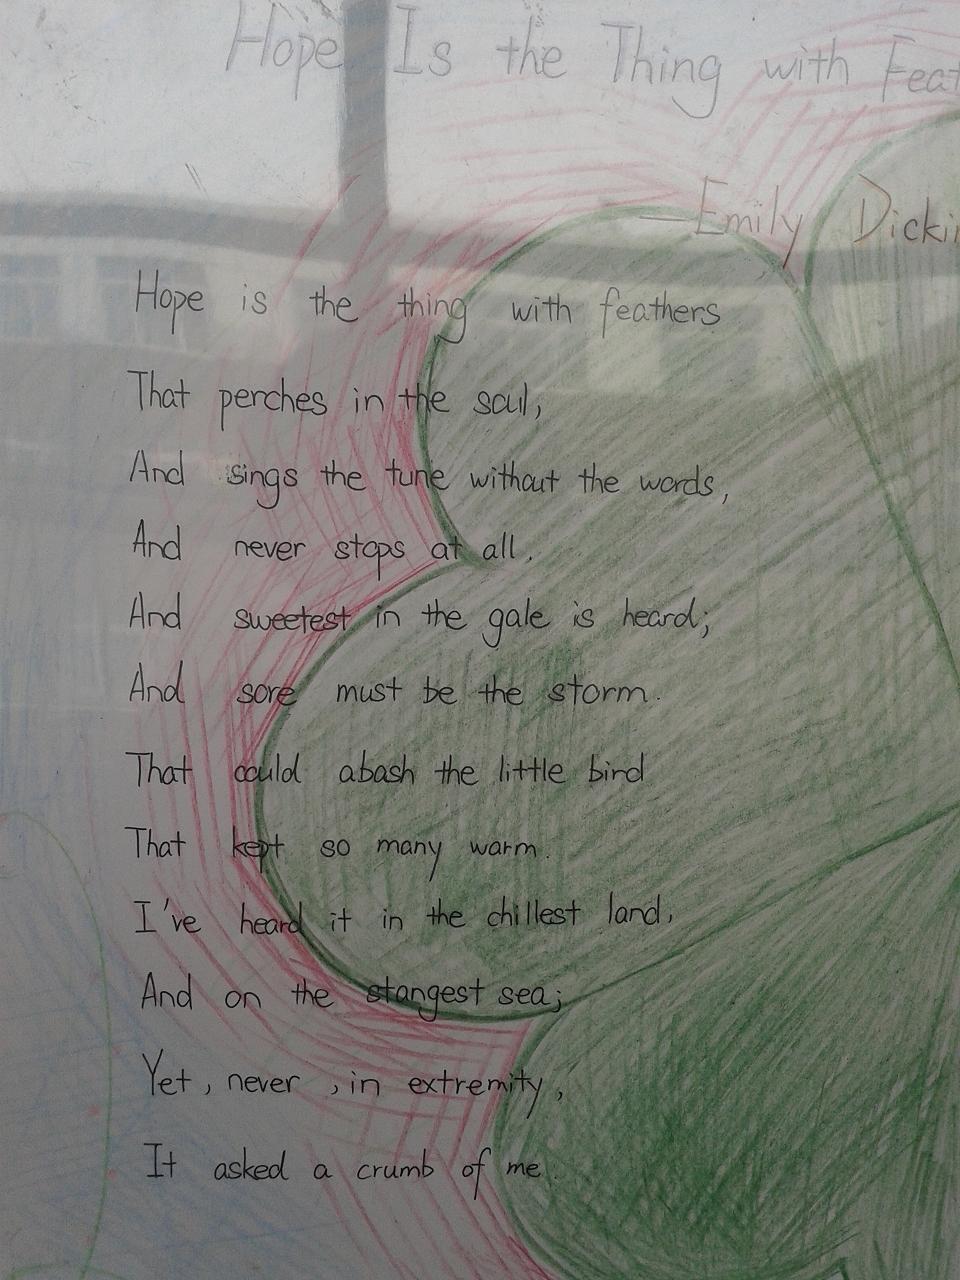 Hope Is the Thing with Feat
—Emily Dickin
Hope is the thing with feathers
That perches in the soul,
And sings the tune without the words,
And never stops at all.
And sweetest in the gale is heard;
And sore must be the storm.
That could abash the little bird
That kept so many warm.
I've heard it in the chillest land,
And on the stangest sea;
Yet, never, in extremity,
It asked a crumb of me.